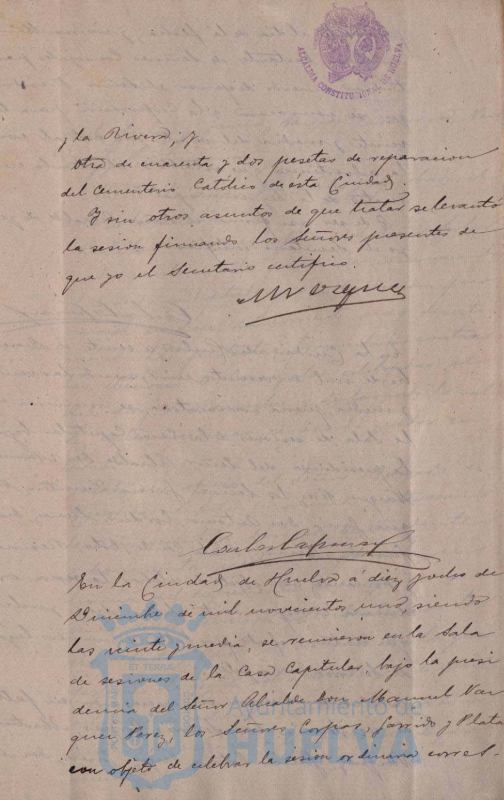 ALCALDIA CONSTITUCIONAL DE HUELVA
y la Rivera, y
Otra de cuarenta y dos pesetas de reparacion
del Cementerio Católico de ésta Ciudad.
Y sin otros asuntos de que tratar se levantó
la sesion firmando los Señores presentes de
que yo el Secretario certifico.
En la Ciudad de Huelva á diez y ocho de
Diciembre de mil novecientos uno, siendo
las veinte y media, se reunieron en la Sala
de sesiones de la Casa Capitular, bajo la presi
dencia del Señor Alcalde Don Manuel Vaz
quez Perez, los Señores Corpas, Garrido y Plata
con objeto de celebrar la sesion ordinaria corres-
Ayuntamiento de
HUELVA